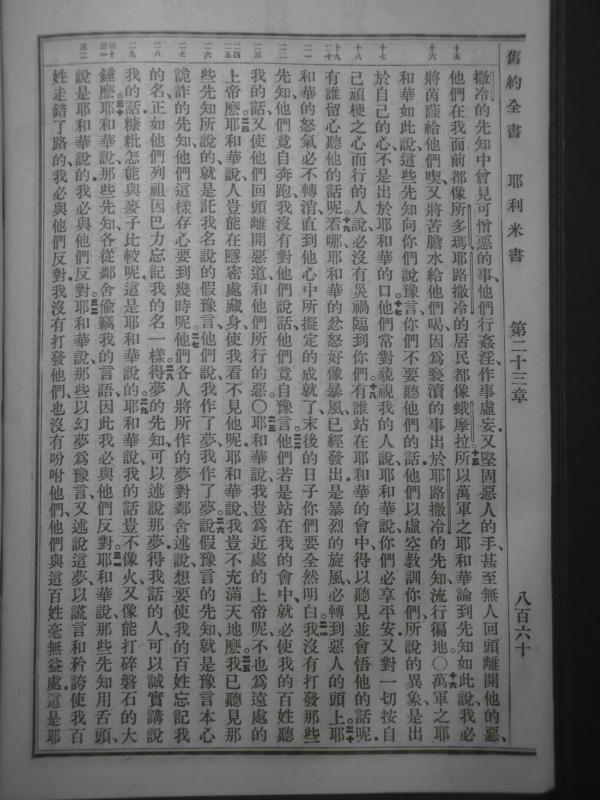 舊約全書 耶利米書 第二十三章 八百六十
撒冷的先知中曾見可憎惡的事、他們行姦淫、作事虛妄、又堅固惡人的手、甚至無人回頭離開他的惡、
十五 他們在我面前都像所多瑪、耶路撒冷的居民都像蛾摩拉。十五所以萬軍之耶和華論到先知如此說、我必
十六 將茵蔯給他們喫、又將苦膽水給他們喝、因為褻瀆的事出於耶路撒冷的先知、流行徧地。○十六萬軍之耶
和華如此說、這些先知向你們說豫言、你們不要聽他們的話、他們以虛空教訓你們、所說的異象、是出
十七 於自己的心、不是出於耶和華的口。十七他們常對藐視我的人說、耶和華說、你們必享平安、又對一切按自
十八 己頑梗之心而行的人說、必沒有災禍臨到你們。十八有誰站在耶和華的會中、得以聽見並會悟他的話呢、
十九 二十 有誰留心聽他的話呢。十九看哪、耶和華的忿怒好像暴風、已經發出、是暴烈的旋風、必轉到惡人的頭上。二十耶
二一 和華的怒氣必不轉消、直到他心中所擬定的成就了、末後的日子你們要全然明白。二一我沒有打發那些
二二 先知、他們竟自奔跑、我沒有對他們說話、他們竟自豫言。二二他們若是站在我的會中、就必使我的百姓聽
二三 我的話、又使他們回頭離開惡道、和他們所行的惡。○二三耶和華說、我豈為近處的上帝呢、不也為遠處的
二四 二五 上帝麼。二四耶和華說、人豈能在隱密處藏身、使我看不見他呢、耶和華說、我豈不充滿天地麼。二五我已聽見那
二六 些先知所說的、就是託我名說的假豫言、他們說、我作了夢、我作了夢。二六說假豫言的先知、就是豫言本心
二七 詭詐的先知、他們這樣存心要到幾時呢。二七他們各人將所作的夢對鄰舍述說、想要使我的百姓忘記我
二八 的名、正如他們列祖因巴力忘記我的名一樣。二八得夢的先知、可以述說那夢、得我話的人、可以誠實講說
二九 我的話、糠粃怎能與麥子比較呢、這是耶和華說的。二九耶和華說、我的話豈不像火、又像能打碎磐石的大
三十 三一 錘麼。三十耶和華說、那些先知各從鄰舍偷竊我的言語、因此我必與他們反對。三一耶和華說、那些先知用舌頭、
三二 說是耶和華說的、我必與他們反對。三二耶和華說、那些以幻夢為豫言、又述說這夢、以謊言和矜誇使我百
姓走錯了路的、我必與他們反對、我沒有打發他們、也沒有吩咐他們、他們與這百姓毫無益處、這是耶